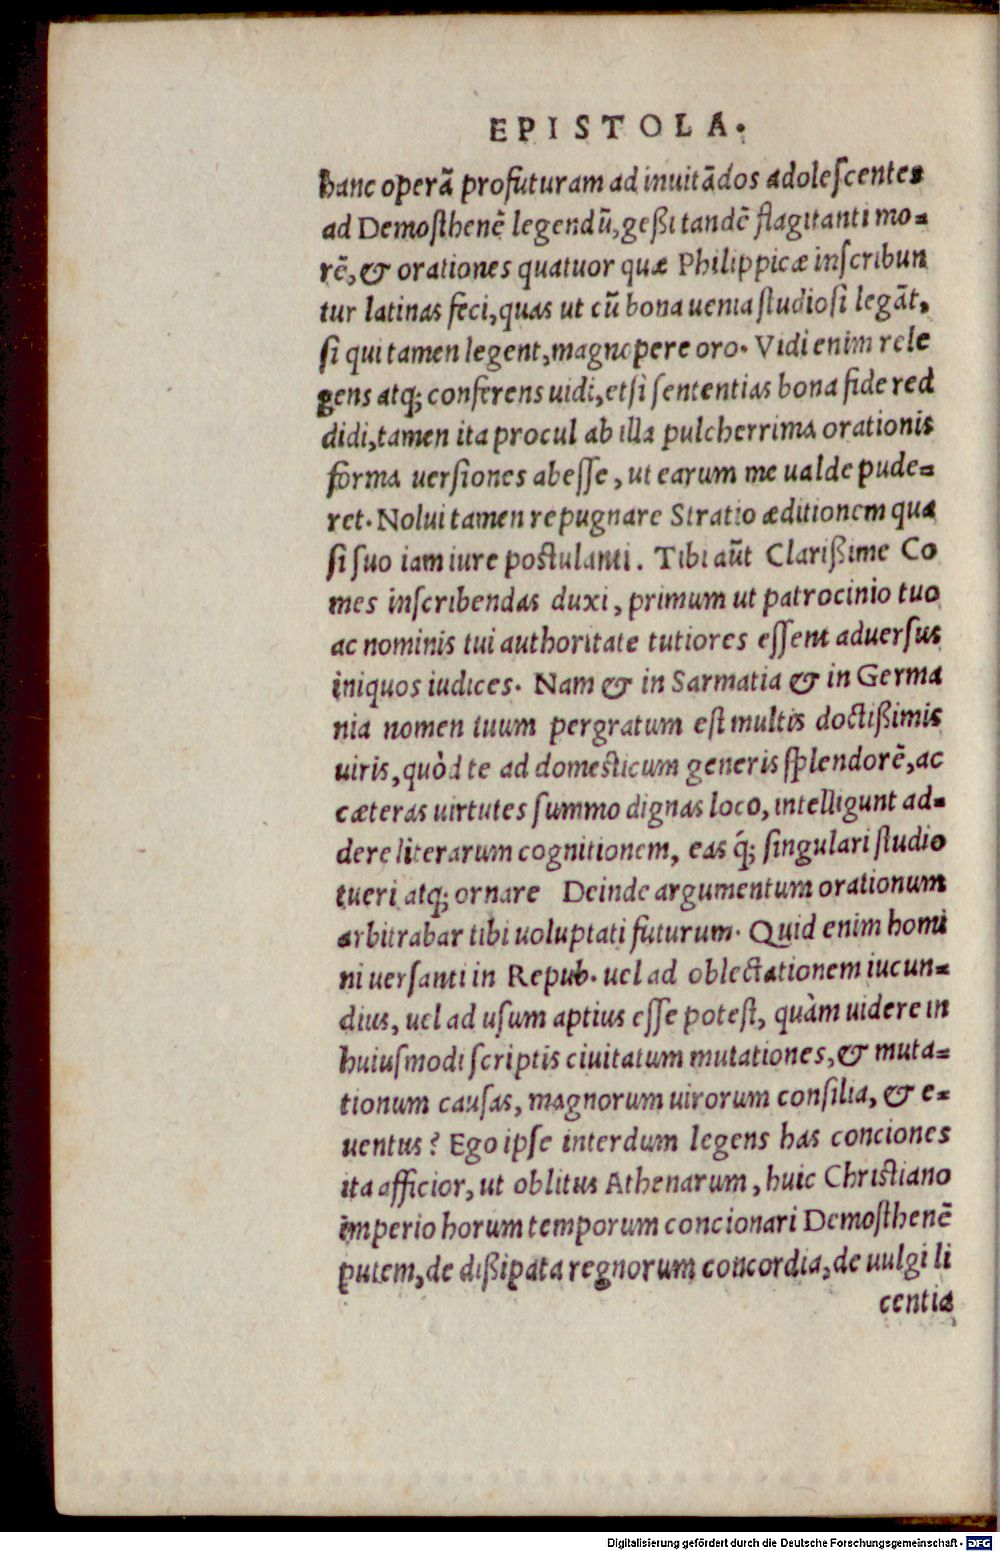 EPISTOLA.
hanc operã profuturam ad inuitãdos adolescentes
ad Demosthenẽ legendũ, geßi tandẽ flagitanti mo-
rẽ, & orationes quatuor quæ Philippicæ inscribun
tur latinas feci, quas ut cũ bona uenia studiosi legãt,
si qui tamen legent, magnopere oro. Vidi enim rele
gens atq; conferens uidi, etsi sententias bona fide red
didi, tamen ita procul ab illa pulcherrima orationis
forma uersiones abesse, ut earum me ualde pude-
ret. Nolui tamen repugnare Stratio æditionem qua
si suo iam iure postulanti. Tibi aũt Clarißime Co
mes inscribendas duxi, primum ut patrocinio tuo
ac nominis tui authoritate tutiores essent aduersus
iniquos iudices. Nam & in Sarmatia & in Germa
nia nomen tuum pergratum est multis doctißimis
uiris, quòd te ad domesticum generis splendorẽ, ac
cæteras uirtutes summo dignas loco, intelligunt ad-
dere literarum cognitionem, eas q́; singulari studio
tueri atq; ornare Deinde argumentum orationum
arbitrabar tibi uoluptati futurum. Quid enim homi
ni uersanti in Repub. uel ad oblectationem iucun-
dius, uel ad usum aptius esse potest, quàm uidere in
huiusmodi scriptis ciuitatum mutationes, & muta-
tionum causas, magnorum uirorum consilia, & e-
uentus? Ego ipse interdum legens has conciones
ita afficior, ut oblitus Athenarum, huic Christiano
imperio horum temporum concionari Demosthenẽ
putem, de dißipata regnorum concordia, de uulgi li
centia
Digitalisierung gefördert durch die Deutsche Forschungsgemeinschaft - DFG